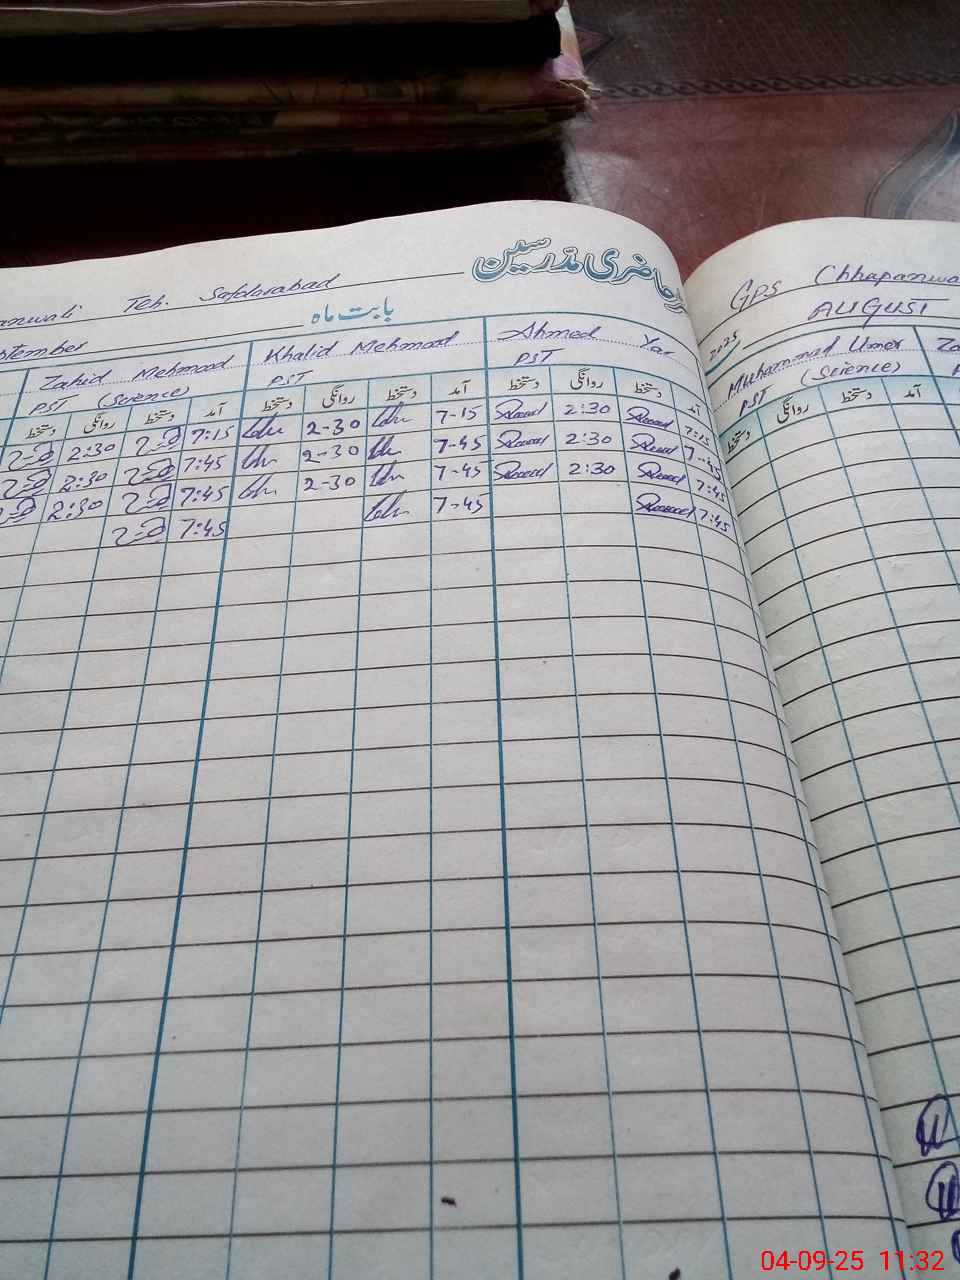 حاضری مدرسین
Teh. Safdarabad
بابت ماہ
Zahid Mehmood
PST (Science)
Khalid Mehmood
PST
Ahmed Yar
PST
دستخط روانگی دستخط آمد دستخط روانگی دستخط آمد دستخط روانگی دستخط آمد
2:30 7:15 2-30 7-15 2:30 7:15
2:30 7:45 2-30 7-45 2:30 7-45
2:30 7:45 2-30 7-45 2:30 7:45
7:45 7-45 7:45
GPS Chhapanwa
AUGUST
2025
Muhammad Umer
PST (Science)
Za
دستخط روانگی دستخط آمد
04-09-25 11:32